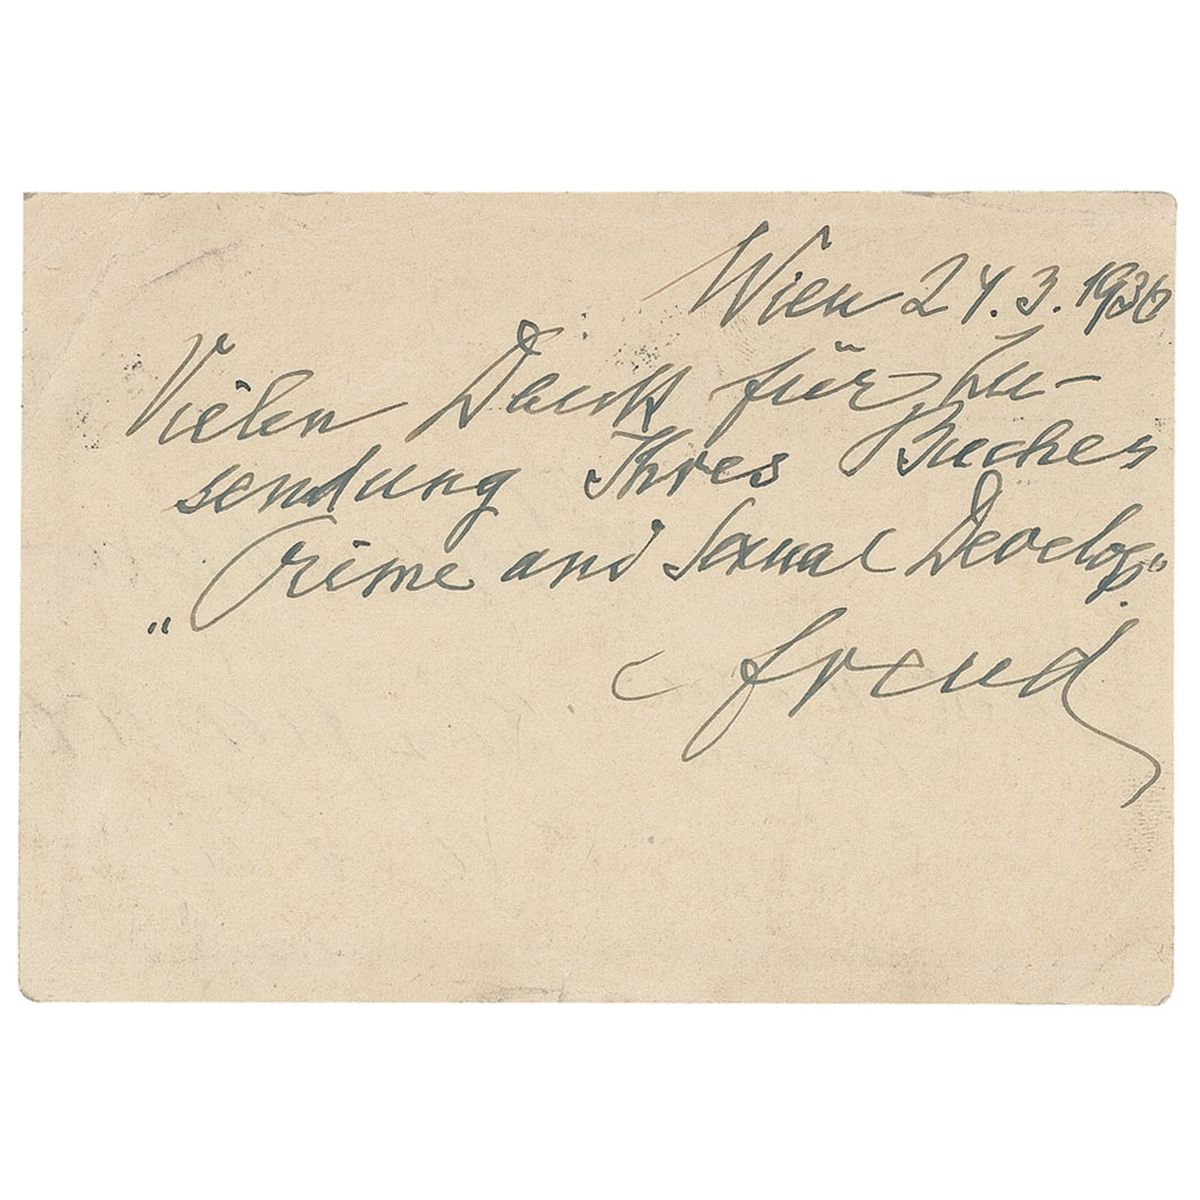 Wien 24.3.1936
Vielen Dank für Zu-
sendung Ihres Buches
„Crime and Sexual Develop.“
Freud